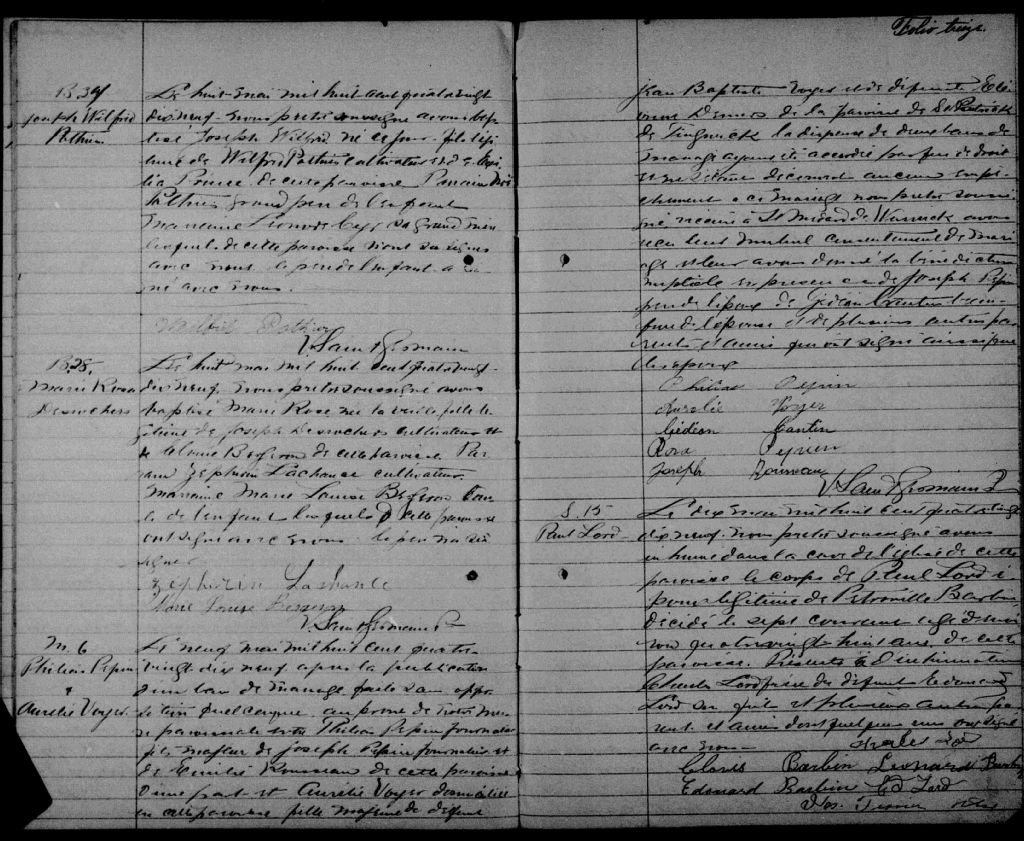 B. 34
Joseph Wilfrid
Pothier
Le huit mai mil huit cent quatrevingt
dix neuf nous pretre soussigné avons bap
tisé Joseph Wilfrid né ce jour fils légi
time de Wilfrid Pothier cultivateur et de
Prince de cette paroisse Parain
Pothier grand pere de l'enfant
Maraine sa grand mere
de cette paroisse
avec nous le pere de l'enfant a si
gné avec nous.
Wilfrid Pothier
V. Saint Germain
B. 35.
Marie Rose
Desrochers
Le huit mai mil huit cent quatrevingt
dix neuf nous pretre soussigné avons
baptisé Marie Rose née la veille fille lé
gitime de Joseph Desrochers cultivateur et
de Louise Bergeron de cette paroisse Par
rain Zephirin Lachance cultivateur
Marraine Marie Louise Bergeron tan
te de l'enfant lesquels de cette paroisse
ont signé avec nous le pere n'a su
signer
Zephirin Lachance
Marie Louise Bergeron
V. Saint Germain Ptr
M. 6
Philias Pepin
&
Aurelie Voyer
Le neuf mai mil huit cent quatre
vingt dix neuf apres la publication
d'un ban de mariage faite sans oppo
sition quelconque au prone de notre mes
se paroissiale entre Philias Pepin journalier
fils majeur de Joseph Pepin journalier et
de Emilie Rousseau de cette paroisse
d'une part et Aurelie Voyer domiciliée
en cette paroisse fille majeure de défunt
Folio treize.
Jean Baptiste Voyer et de défunte
Demers de la paroisse de St Patrick
de Tingwick la dispense de deux bans de
mariage ayant été accordée par
ne s'étant découvert aucun empe
chement a ce mariage nous pretre soussi
gné vicaire à St Médard de Warwick avons
recu leur mutuel consentement de mari
age et leur avons donné la bénédiction
nuptiale en presence de Joseph Pepin
pere de l'epoux de Gédéon Cantin
de l'epouse et de plusieurs autres pa
rents et amis qui ont signé ainsi que
les epoux
Philias Pepin
Aurelie Voyer
Gédéon Cantin
Rosa Pepin
Joseph Rousseau
V. Saint Germain P
S. 15
Paul Lord
Le dix mai mil huit cent quatrevingt
dix neuf nous pretre soussigné avons
inhumé dans la cave de l'église de cette
paroisse le corps de Paul Lord é
poux légitime de Petronille Barbin
décédé le sept courant agé d'envi
ron quatrevingt huit ans de cette
paroisse. Présents à l'inhumation
Charles Lord frere du défunt Edouard
Lord son fils et plusieurs autres pa
rents et amis dont quelques uns ont signé
avec nous
Charles Lord
Barbin Leonard Barbin
Edouard Barbin Ed Lord